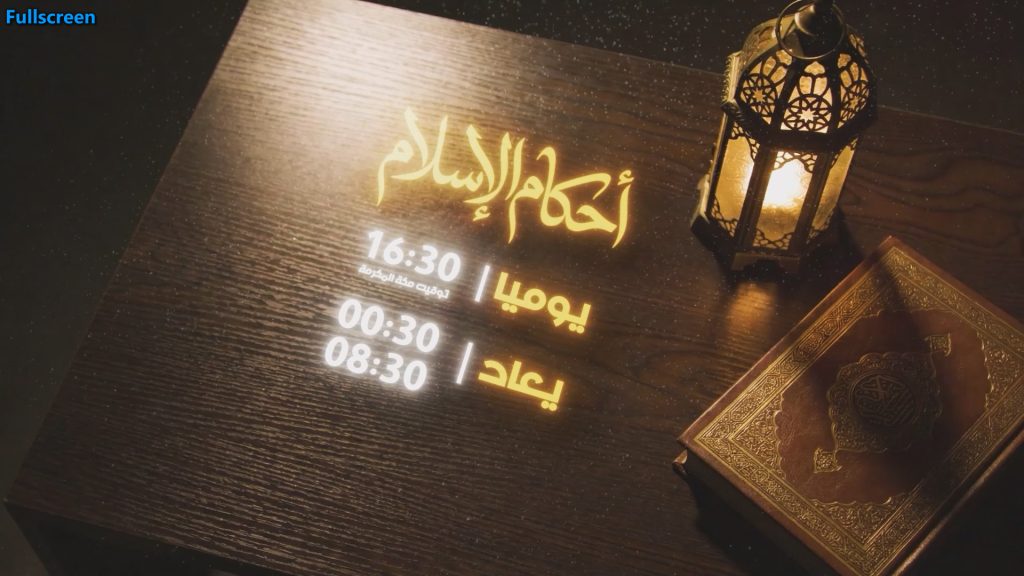 Fullscreen
أحكام الإسلام
يوميا | 16:30
توقيت مكة المكرمة
يعاد | 00:30
08:30